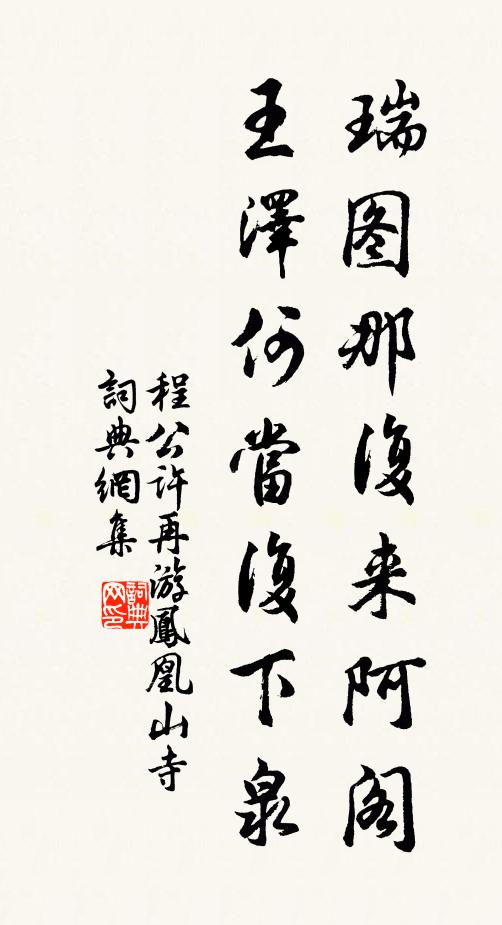 瑞图那復来阿阁
王澤何當復下泉
程公许再游鳳凰山寺
詞典網集
詞典网印